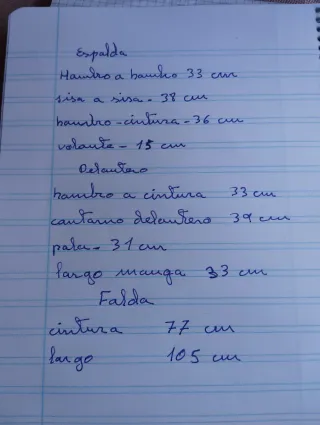 Espalda
Hambro a hambro 33 cm
sisa a sisa - 38 cm
hambro - cintura - 36 cm
volante - 15 cm
Delantero
hambro a cintura 33 cm
contorno delantero 39 cm
pala - 31 cm
largo manga 33 cm
Falda
cintura 77 cm
largo 105 cm